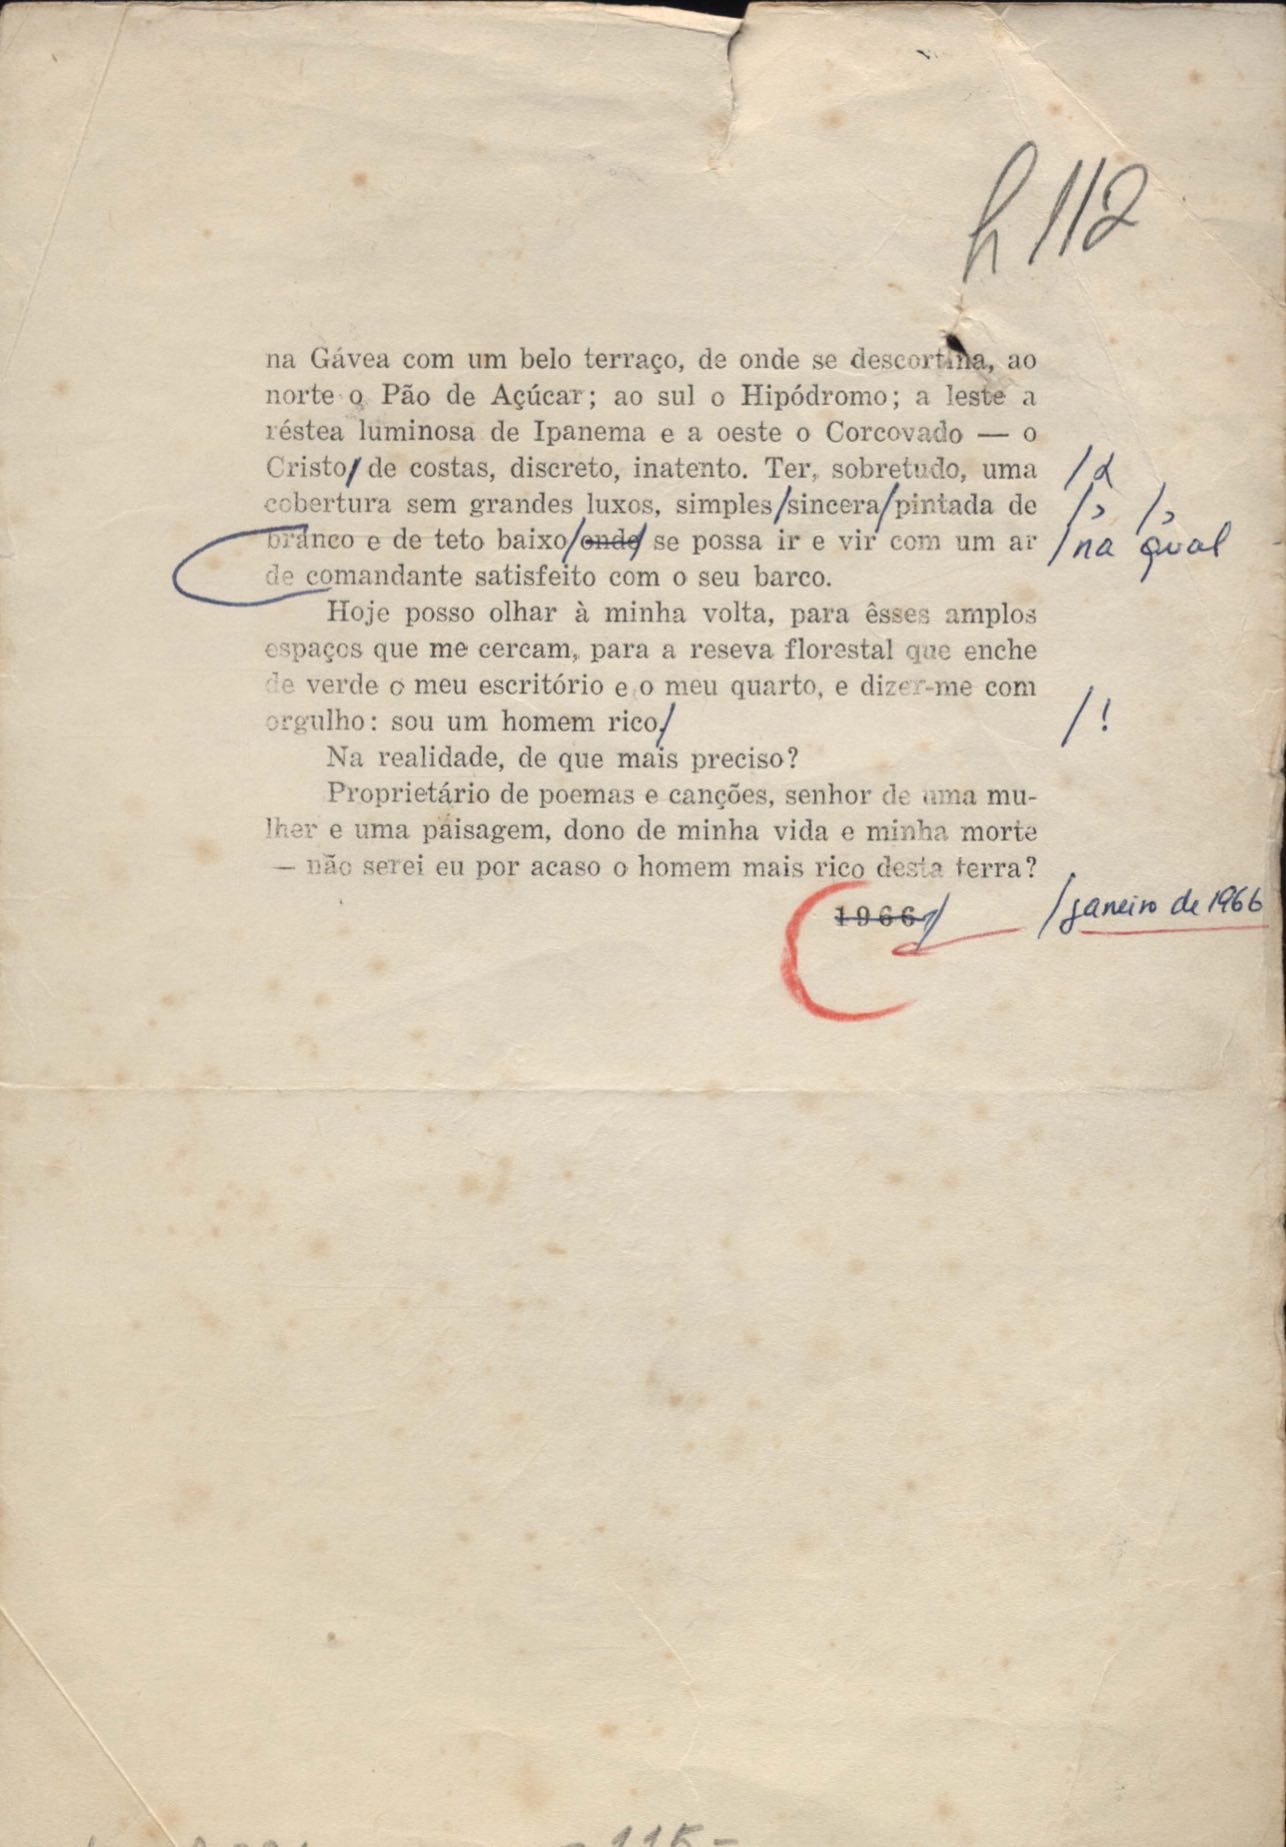 h 112
na Gávea com um belo terraço, de onde se descortina, ao
norte o Pão de Açúcar; ao sul o Hipódromo; a leste a
réstea luminosa de Ipanema e a oeste o Corcovado — o
Cristo/ de costas, discreto, inatento. Ter, sobretudo, uma /
cobertura sem grandes luxos, simples/sincera/pintada de /, /,
branco e de teto baixo/onde/ se possa ir e vir com um ar /na qual
de comandante satisfeito com o seu barco.
Hoje posso olhar à minha volta, para êsses amplos
espaços que me cercam, para a reseva florestal que enche
de verde o meu escritório e o meu quarto, e dizer-me com
orgulho: sou um homem rico/ /!
Na realidade, de que mais preciso?
Proprietário de poemas e canções, senhor de uma mu-
lher e uma paisagem, dono de minha vida e minha morte
— não serei eu por acaso o homem mais rico desta terra?
1966/ /janeiro de 1966
- 115 -